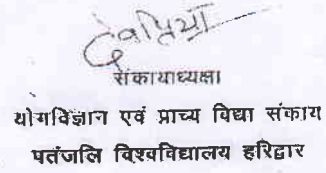 देवप्रिया
संकायाध्यक्षा
योगविज्ञान एवं प्राच्य विद्या संकाय
पतंजलि विश्वविद्यालय हरिद्वार